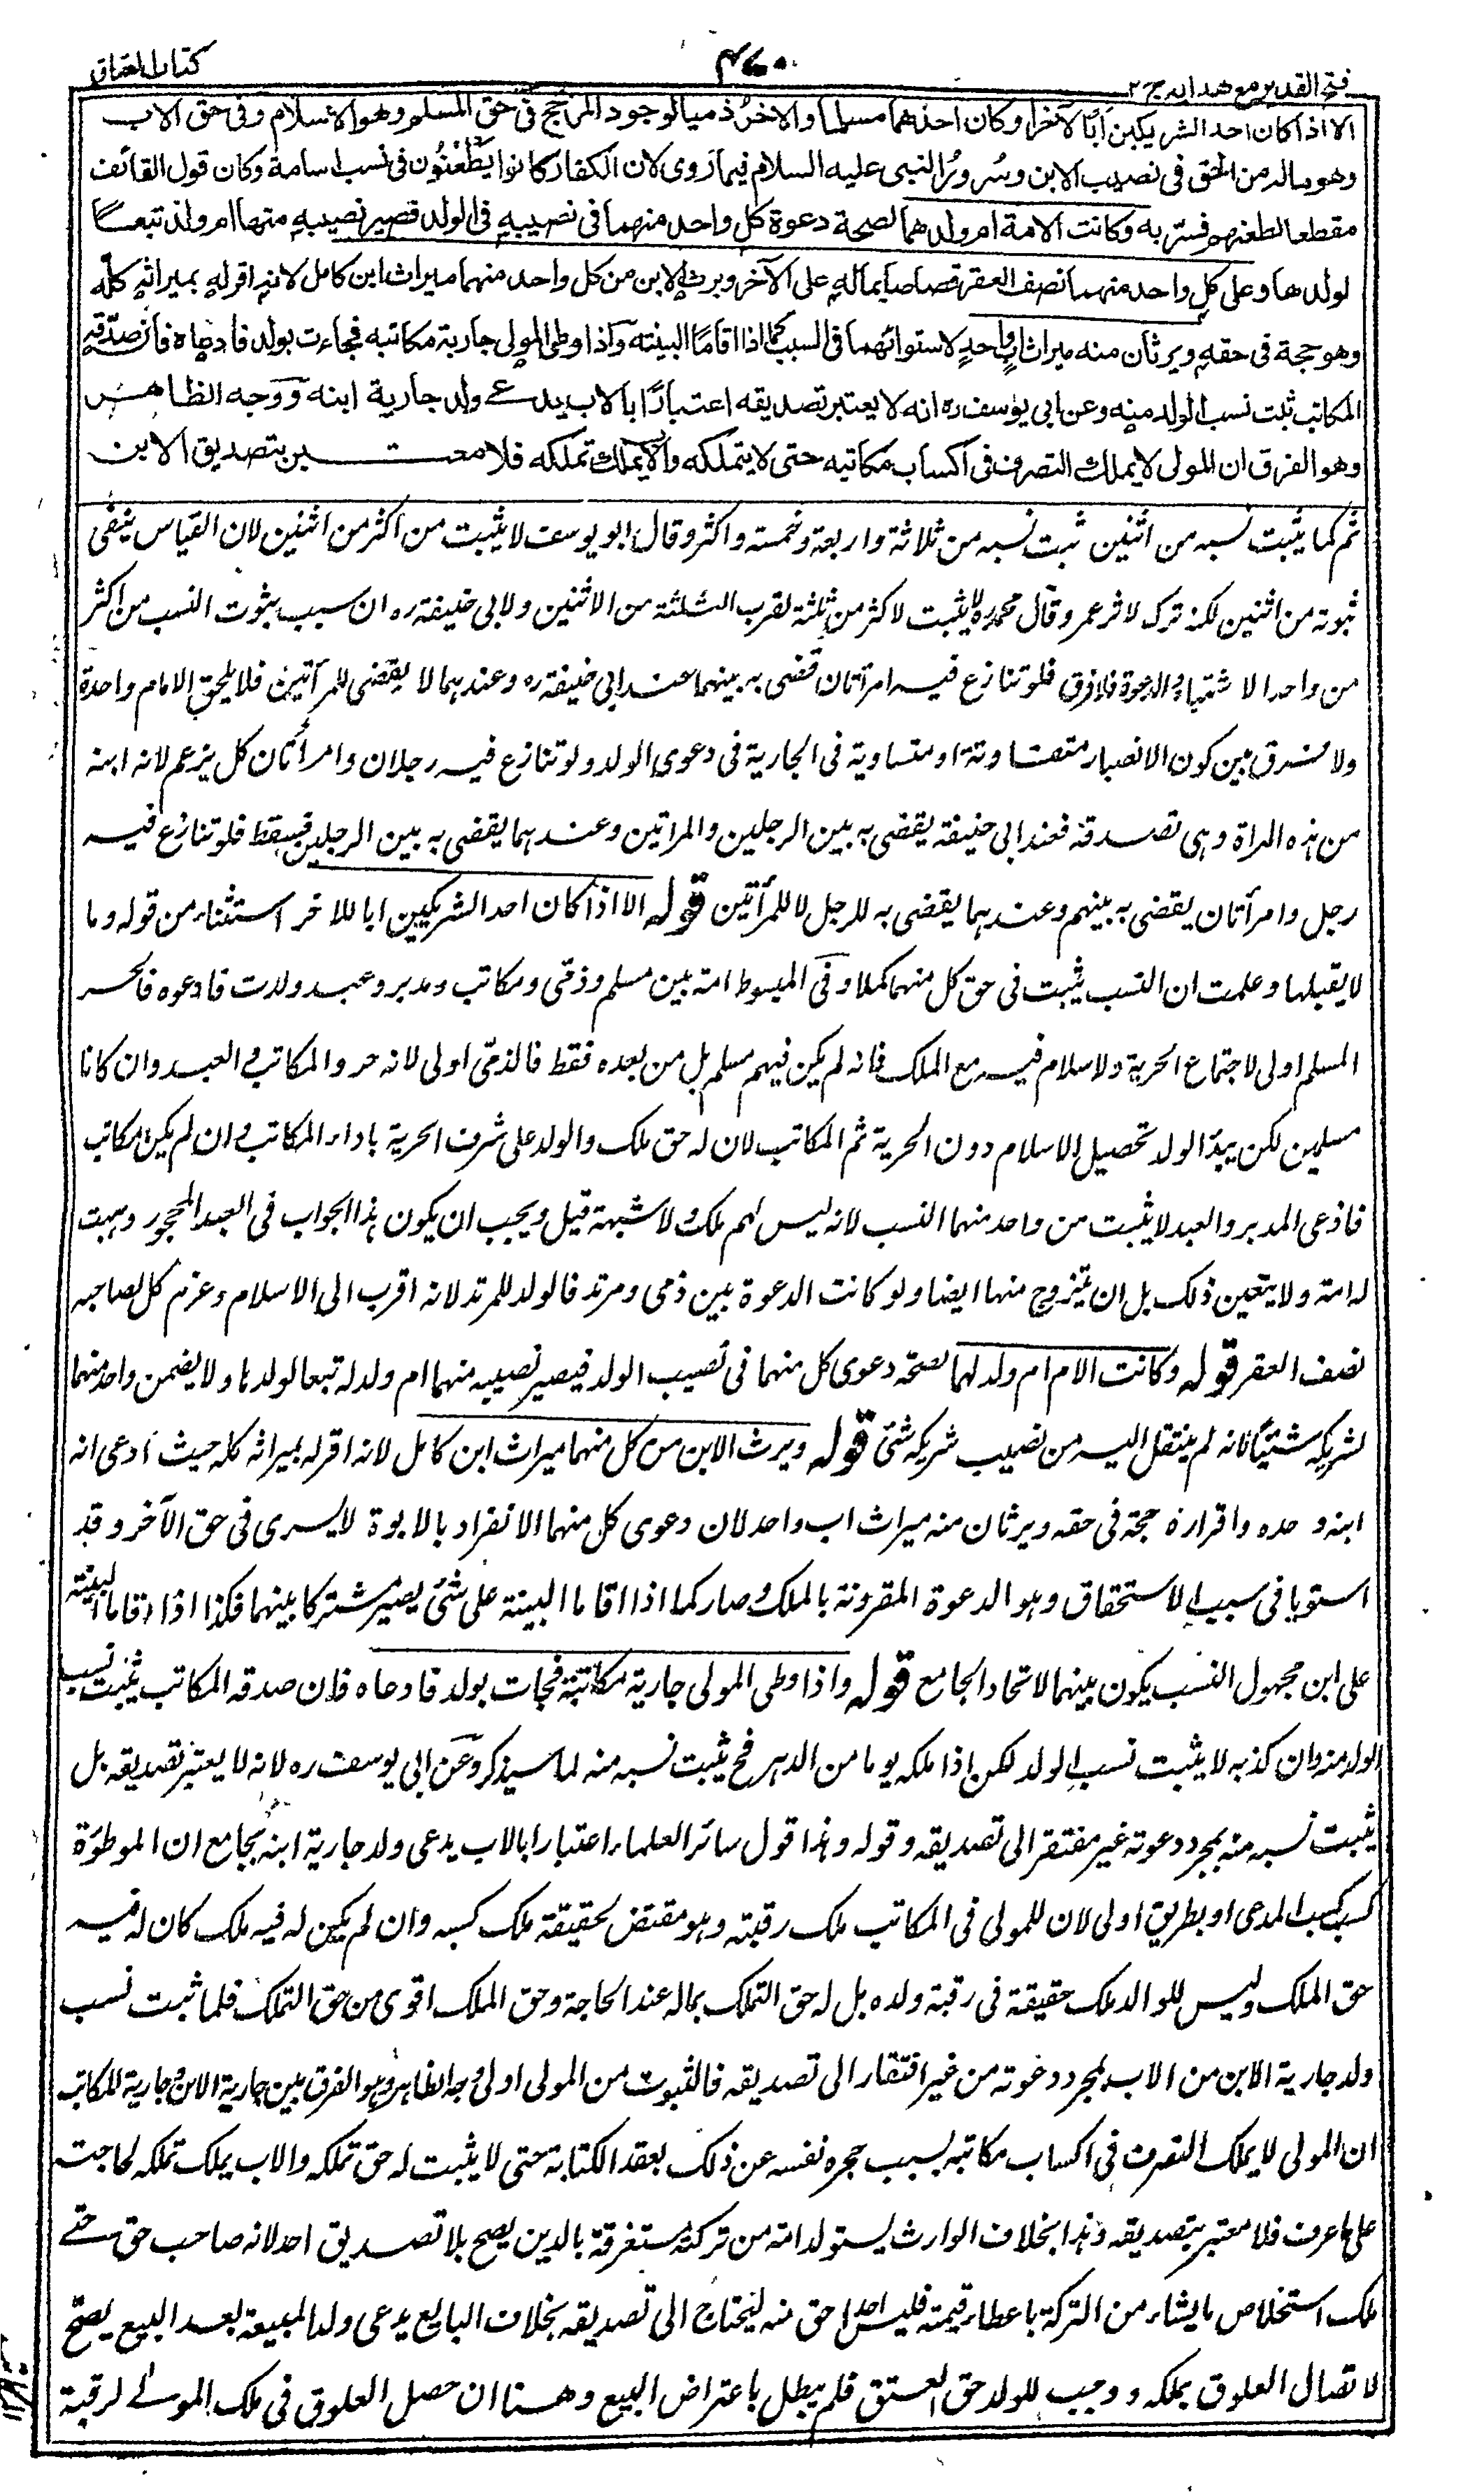 كتاب العتاق
٤٧٠
فتح القدير مع هدايه ج ٢
الا اذا كان احد الشريكين أبًا للآخر او كان احدهما مسلما والاخر ذميا لوجود المرجح فى حق المسلم وهو الاسلام وفى حق الاب
وهو ماله من الحق فى نصيب الابن وسُرورُ النبى عليه السلام فيما رَوى لان الكفار كانوا يَطْعَنُون فى نسب اسامة وكان قول القائف
مقطعا لطعنهم فسرّ به وكانت الامة ام ولد هما لصحة دعوة كل واحد منهما فى نصيبه فى الولد فصير نصيبه منها ام ولد تبعًا
لولدها وعلى كل واحد منهما نصف العقر قصاصا بماله على الآخر ويرث الابن من كل واحد منهما ميراث ابن كامل لانه اقر له بميراثه كله
وهو حجة فى حقه ويرثان منه ميراث اب واحد لاستوائهما فى السبب كما اذا اقاما البينة واذا وطى المولى جارية مكاتبه فجاءت بولد فادعاه فان صدقه
المكاتب ثبت نسب الولد منه وعن ابى يوسف ره انه لا يعتبر تصديقه اعتبارًا بالاب يدعى ولد جارية ابنه ووجه الظاهر
وهو الفرق ان المولى لا يملك التصرف فى اكساب مكاتبه حتى لا يتملكه والاب يملك تملكه فلا معتبر بتصديق الابن
ثم كما يثبت نسبه من اثنين ثبت نسبه من ثلاثة واربعة وخمسة واكثر وقال ابو يوسف لا يثبت من اكثر من اثنين لان القياس ينفى
ثبوته من اثنين لكنه ترك لاثر عمر وقال محمد ره لا يثبت لاكثر من ثلثة لقرب الثلثة من الاثنين ولابى حنيفة ره ان سبب ثبوت النسب من اكثر
من واحد الاشتباه والدعوة فلا فرق فلو تنازع فيه امرأتان قضى به بينهما عند ابى حنيفة ره وعندهما لا يقضى للمرأتين فلا يلحق الا بام واحدة
ولا فرق بين كون الانصبا متفاوتة او متساوية فى الجارية فى دعوى الولد ولو تنازع فيه رجلان وامرأتان كل يزعم لانه ابنه
من هذه المراة وهى تصدقه فعند ابى حنيفة يقضى به بين الرجلين والمراتين وعندهما يقضى به بين الرجلين فقط فلو تنازع فيه
رجل وامرأتان يقضى به بينهم وعندهما يقضى به للرجل لا للمرأتين قوله الا اذا كان احد الشريكين ابا للاخر استثناء من قوله وما
لا يقبلها وعلمت ان النسب يثبت فى حق كل منهما كملا وفى المبسوط امة بين مسلم وذمّى ومكاتب ومدبر وعبد ولدت فادعوه فالحر
المسلم اولى لاجتماع الحرية والاسلام فيه مع الملك فان لم يكن فيهم مسلم بل من بعده فقط فالذمّى اولى لانه حر والمكاتب والعبد وان كانا
مسلمين لكن بيد الولد تحصيل الاسلام دون الحرية ثم المكاتب لان له حق ملك والولد على شرف الحرية باداء المكاتب وان لم يكن مكاتب
فادعى المدبر والعبد لا يثبت من واحد منهما النسب لانه ليس لهم ملك ولا شبهة قيل ويجب ان يكون هذا الجواب فى العبد المحجور وهبت
له امة ولا يتعين ذلك بل ان يتزوج منها ايضا ولو كانت الدعوة بين ذمى ومرتد فالولد للمرتد لانه اقرب الى الاسلام وغرم كل لصاحبه
نصف العقر قوله وكانت الام ام ولد لهما لصحة دعوى كل منهما فى نصيب الولد فيصير نصيبه منها ام ولد له تبعا لولدها ولا يضمن واحد منهما
لشريكه شئيًا لانه لم ينتقل اليه من نصيب شريكه شئ قوله ويرث الابن من كل منهما ميراث ابن كامل لانه اقر له بميراثه كله حيث ادعى انه
ابنه وحده واقراره حجة فى حقه ويرثان منه ميراث اب واحد لان دعوى كل منهما الانفراد بالابوة لا يسرى فى حق الآخر وقد
استويا فى سبب الاستحقاق وهو الدعوة المقرونة بالملك وصار كما اذا اقاما البينة على شئ يصير مشتركا بينهما فكذا اذا اقاما البينة
على ابن مجهول النسب يكون بينهما لاتحاد الجامع قوله واذا وطى المولى جارية مكاتبه فجات بولد فادعاه فان صدقه المكاتب يثبت نسب
الولد منه وان كذبه لا يثبت نسب الولد لكن اذا ملكه يوما من الدهر فح يثبت نسبه منه لما سيذكر وعن ابى يوسف ره لانه لا يعتبر تصديقه بل
يثبت نسبه منه بمجرد دعوته غير مفتقر الى تصديقه وقوله وهذا قول سائر العلماء اعتبارا بالاب يدعى ولد جارية ابنه بجامع ان الموطؤة
كسب كسب المدعى او بطريق اولى لان للمولى فى المكاتب ملك رقبته وهو مقتض لحقيقة ملك كسبه وان لم يكن له فيه ملك كان له فيه
حق الملك وليس للوالد ملك حقيقة فى رقبة ولده بل له حق التملك بماله عند الحاجة وحق الملك اقوى من حق التملك فلما ثبت نسب
ولد جارية الابن من الاب بمجرد دعوته من غير افتقار الى تصديقه فالثبوت من المولى اولى وجه الظاهر وهو الفرق بين جارية الابن وجارية المكاتب
ان المولى لا يملك التصرف فى اكساب مكاتبه بسبب حجره نفسه عن ذلك بعقد الكتابة حتى لا يثبت له حق تملكه والاب يملك تملكه لحاجته
على ما عرف فلا معتبر بتصديقه وهذا بخلاف الوارث يستولد امة من تركة مستغرقة بالدين يصح بلا تصديق احد لانه صاحب حق حتى
ملك استخلاص ما يشاء من التركة باعطاء قيمته فليس احد احق منه ليحتاج الى تصديقه بخلاف البايع يدعى ولد المبيعة بعد البيع يصح
لاتصال العلوق بملكه ووجب للولد حق العتق فلم يبطل باعتراض البيع وهنا ان حصل العلوق فى ملك المولى لرقبة